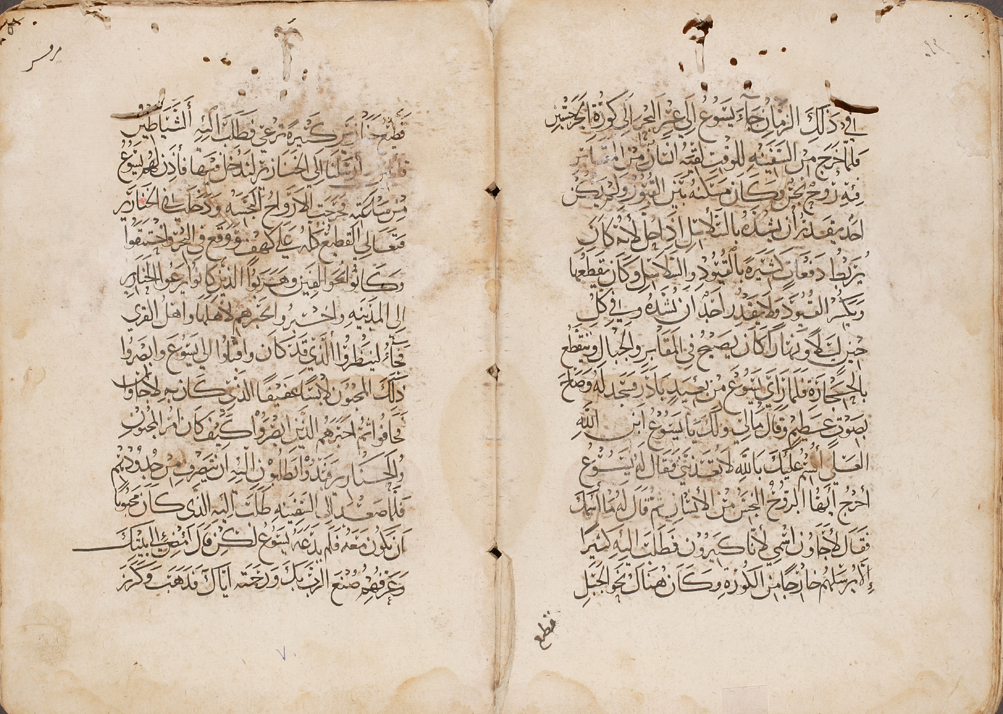 في ذلك الزمان جاء يسوع الى عبر البحر الى كورة الجرجسيين
فلما خرج من السفينه للوقت لقيه انسان من المقابر
فيه روح نجس وكان مسكنه بين القبور ولم يكن
احد يقدر ان يشده بالسلاسل لانه كان
يربط دفعات كثيره بالقيود والسلاسل وكان يقطعها
ويكسر القيود ولا يقدر احد ان يشده وفي كل
حين ليلا ونهارا كان يصيح في المقابر والجبال ويتقطع
بالحجارة فلما راى يسوع من بعيد بادر وسجد له وصاح
بصوت عظيم وقال مالي ولك يا يسوع ابن الله
العلي اقسم عليك بالله لا تعذبني فقال له يسوع
اخرج ايها الروح النجس من الانسان ثم قال له ما اسمك
فقال لاجاون اسمي لاننا كثيرون فطلب اليه كثيرا
الا يرسلهم خارجا من الكورة وكان هناك نحو الجبل
قطيع
قطيع خنازير كثيرة ترعى فطلب اليه الشياطين
ارسلنا الى الخنازير لندخل فيها فأذن لهم يسوع
من ساعته خرجت الارواح النجسه ودخلت في الخنازير
فتعالى القطيع كله على كهف ووقع في البحر واختنقوا
وكانوا نحو الفين وهربوا الذين كانوا يرعوا الخنازير
الى المدينه واخبروهم لاهلها واهل القرى
فجاءوا لينظروا الذي قد كان واقبلوا الى يسوع وابصروا
ذلك المجنون لابسا عفيفا الذي كان به لاجاون
فخافوا ثم اخبرهم الذين ابصروا كيف كان امر المجنون
والخنازير فبدوا يطلبون اليه ان ينصرف من حدودهم
فلما صعد الى السفينه طلب اليه الذي كان مجنونا
ان يكون معه فلم يدعه يسوع لكن قال امض الى بيتك
وعرفهم صنع الرب بك ورحمته اياك فذهب وكرز